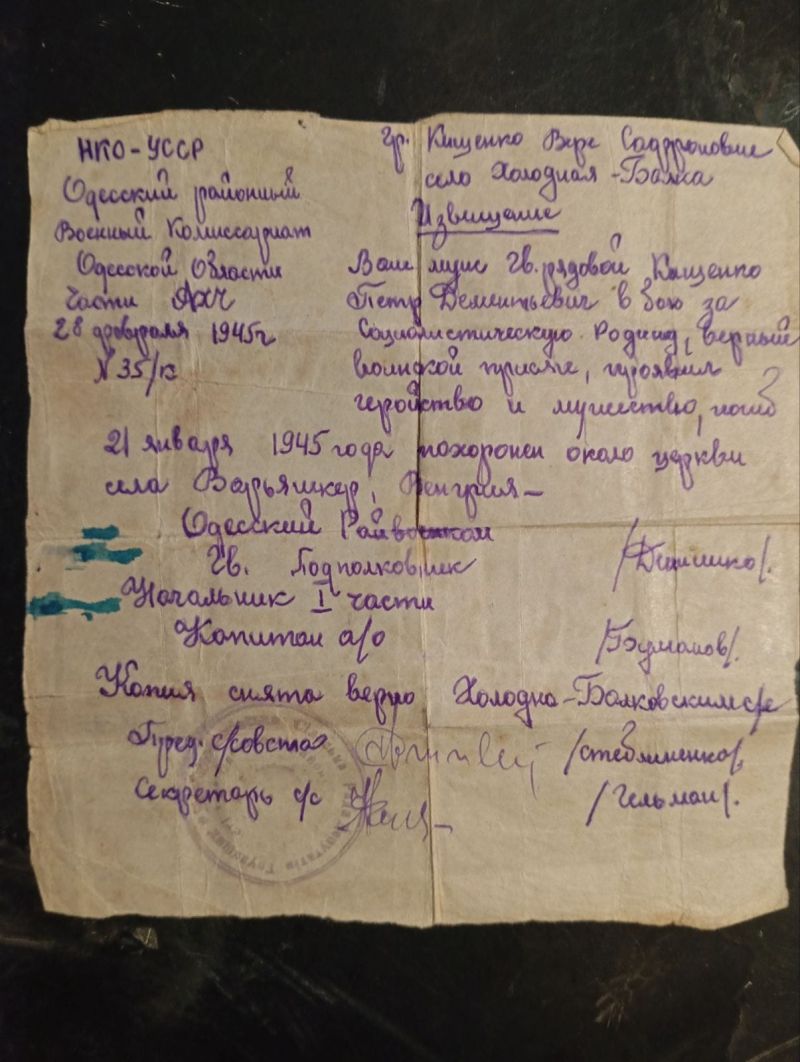 НКО-УССР
Одесский районный
Военный Комиссариат
Одесской Области
части АХЧ
28 февраля 1945г
N 35/к
Гр. Кищенко Вере Софроновне
село Холодная-Балка
Извищание
Ваш муж Гв. рядовой Кищенко
Петр Дементьевич в бою за
Социалистическую Родину, верный
воинской присяге, проявил
геройство и мужество, погиб
21 января 1945 года похоронен около церкви
села Венгрия-
Одесский Райвоенком
Гв. Подполковник
Начальник I части
Капитан а/с /Бу
Копия снята верно Холодно-Балковским с/с
Пред. с/совета /Стеблиненко/.
Секретарь с/с /Гельман/.